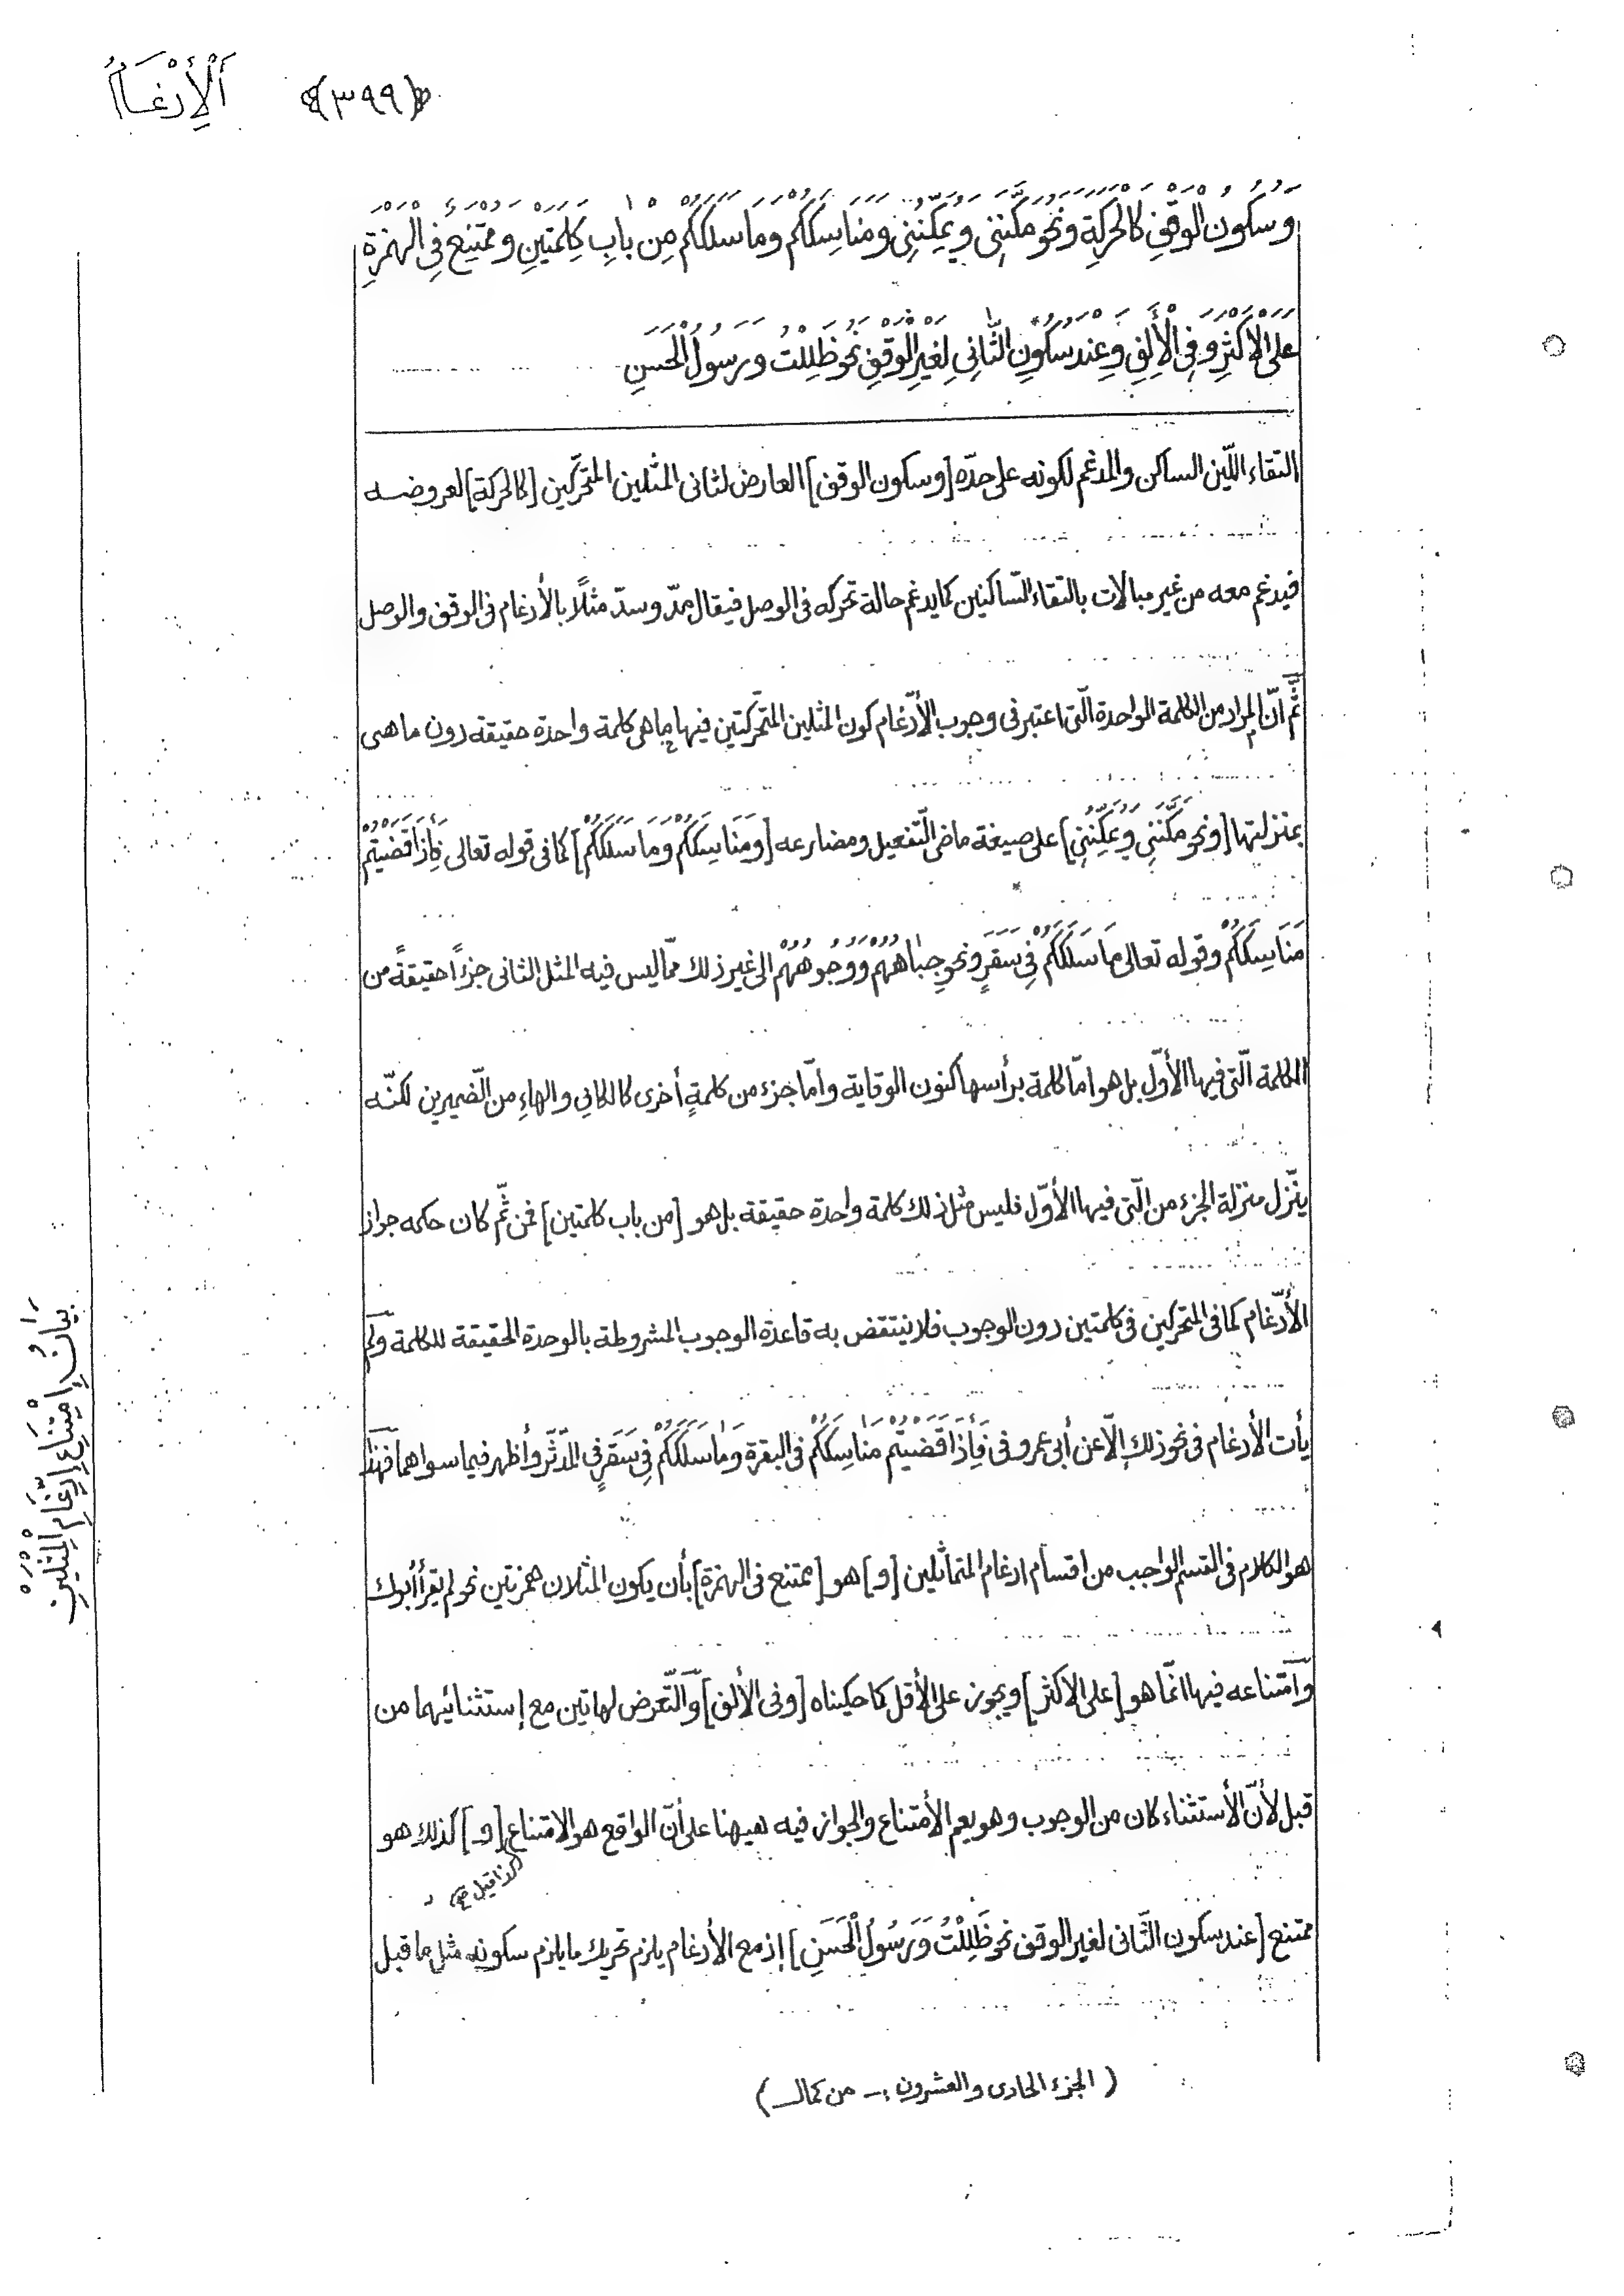 ﴿٣٩٩﴾ اَلْإِدْغَـامُ
وَسُكُونُ الْوَقْفِ كَالْحَرَكَةِ وَنَحْوُ مَكَّنَنِي وَيُمَكِّنُنِي وَمَنَاسِكَكُمْ وَمَا سَلَكَكُمْ مِنْ بَابِ كَلِمَتَيْنِ وَمُمْتَنِعٌ فِي الْهَمْزَةِ
عَلَى الْأَكْثَرِ وَفِي الْأَلِفِ وَعِنْدَ سُكُونِ الثَّانِي لِغَيْرِ الْوَقْفِ نَحْوُ ظَلِلْتُ وَرَسُولُ الْحَسَنِ
التقاء اللّين الساكن والمدغم لكونه على حدّه [وسكون الوقف] العارض لثانى المثلين المتحرّكين [كالحركة] لعروضـه
فيدغم معه من غير مبالات بالتقاء السّاكنين كما يدغم حالة تحركه فى الوصل فيقال مدّ وسدّ مثلًا بالأدغام فى الوقف والوصل
ثُمّ انّ المراد من الكلمة الواحدة الّتى اعتبر فى وجوب الأدّغام كون المثلين المتحّركتين فيها ما هى كلمة واحدة حقيقة دون ما هى
بمنزلتها [ونحو مَكَّنَنِي وَيُمَكِّنُنِي] على صيغة ماضى التّفعيل ومضارعه [وَمَنَاسِكَكُمْ وَمَا سَلَكَكُمْ] كما فى قوله تعالى فَأِذَا قَضَيْتُمْ
مَنَاسِكَكُمْ وقوله تعالى مَا سَلَكَكُمْ فِي سَقَرٍ ونحو جِبَاهُهُمْ وَوُجُوهُهُمْ الى غير ذلك ممّا ليس فيه المثل الثانى جزءًا حقيقةً من
الكلمة الّتى فيها الأوّل بل هو امّا كلمة برأسها كنون الوقاية وامّا جزء من كلمةٍ أخرى كالكافِ والهاءِ من الضّميرين لكنّـه
ينّزل منزلة الجزء من الّتى فيها الأوّل فليس مثل ذلك كلمة واحدة حقيقة بل هو [من باب كلمتين] فمن ثَمّ كان حكمه جواز
الأدّغام كما فى المتحركين فى كلمتين دون الوجوب فلا ينتقض به قاعدة الوجوب المشروطة بالوحدة الحقيقة للكلمة ولم
يأت الأدغام فى نحو ذلك إلّا عن أبى عمرو فى فَأِذَا قَضَيْتُمْ مَنَاسِكَكُمْ فى البقرة وَمَا سَلَكَكُمْ فِي سَقَرٍ فى المدّثّر وأظهر فيما سواهما فهذا
هو الكلام فى القسم الواجب من اقسام ادغام المتماثلين [و] هو [ممتنع فى الهمزة] بأن يكون المثلان همزتين نحو لم يقرأ أبوك
وامتناعه فيها انّما هو [على الاكثر] ويجوز على الأقل كما حكيناه [وفى الألف] والتّعرض لهاتين مع إستثنائيهما من
قبل لأنّ الأستثناء كان من الوجوب وهو يعم الأمتناع والجواز فيه هيهنا على أنّ الواقع هو الامتناع [و] كذلك هو
ممتنع [عند سكون الثّانى لغير الوقف نحو ظَلِلْتُ وَرَسُولُ الْحَسَنِ] إذ مع الأدغام يلزم تحريك ما يلزم سكونه مثل ما قبل
(الجزء الحادى والعشرون :ـ من كمالـ)
بَيَانُ إِمْتِنَاعِ إِدِّغَامِ الْمِثْلَيْنِ